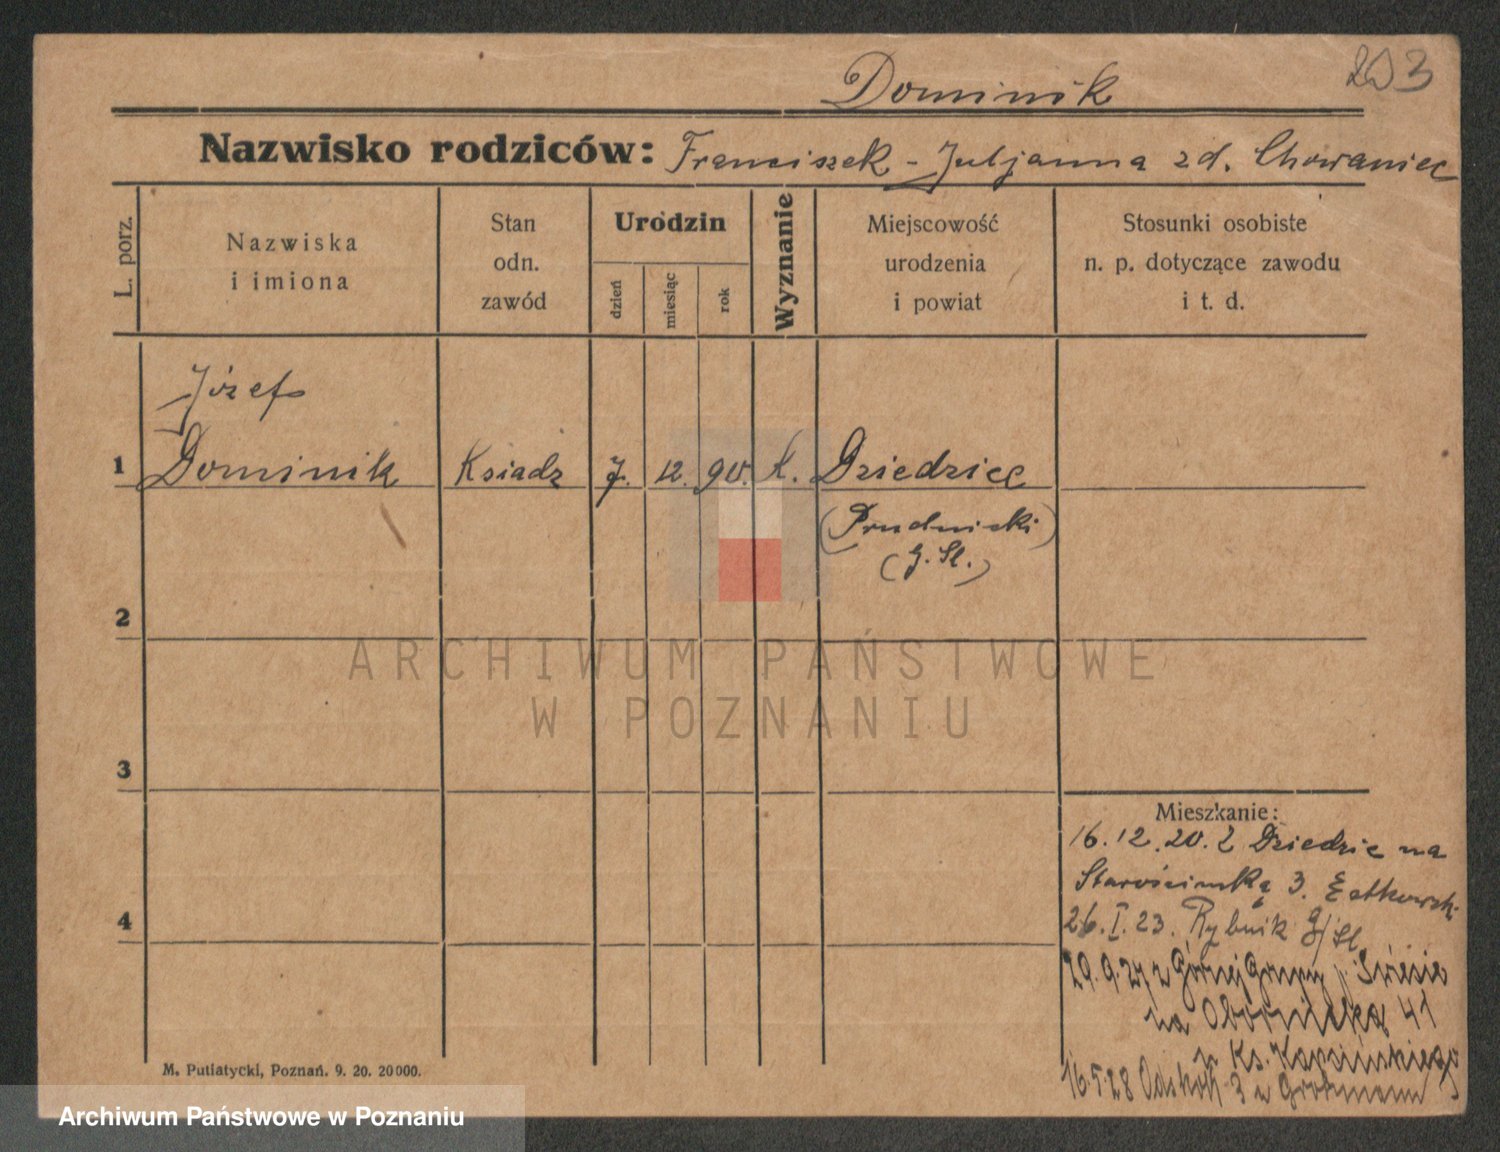 Dominik
203
Nazwisko rodziców: Franciszek - Juljanna zd. Chowaniec
L. porz.
Nazwiska
i imiona
Stan
odn.
zawód
Urodzin
dzień
miesiąc
rok
Wyznanie
Miejscowość
urodzenia
i powiat
Stosunki osobiste
n. p. dotyczące zawodu
i t. d.
Józef
1 Dominik Ksiadz 7. 12. 90. K. Dziedzice
(Prudnicki)
(G. Sl.)
2
ARCHIWUM PAŃSTWOWE
W POZNANIU
3
4
Mieszkanie:
16.12.20. z Dziedzic na
3.
26.I.23. Rybnik g/Sl.
29.9.27 z Górnej Grupy p. Świecie
na Obornicką 41
Ks.
16.5.28 3
M. Putiatycki, Poznań. 9. 20. 20000.
Archiwum Państwowe w Poznaniu